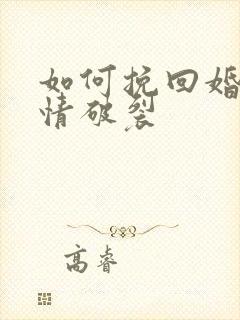 如何挽回婚
情破裂
高睿